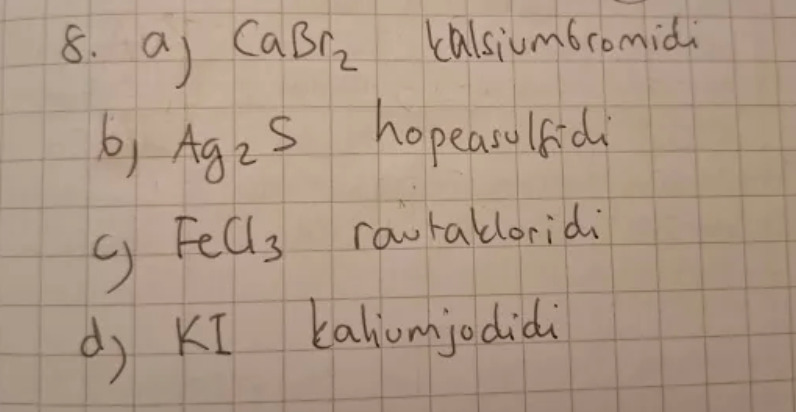 8. a) CaBr₂ kalsiumbromidi
b) Ag₂S hopeasulfidi
c) FeCl₃ rautakloridi
d) KI kaliumjodidi